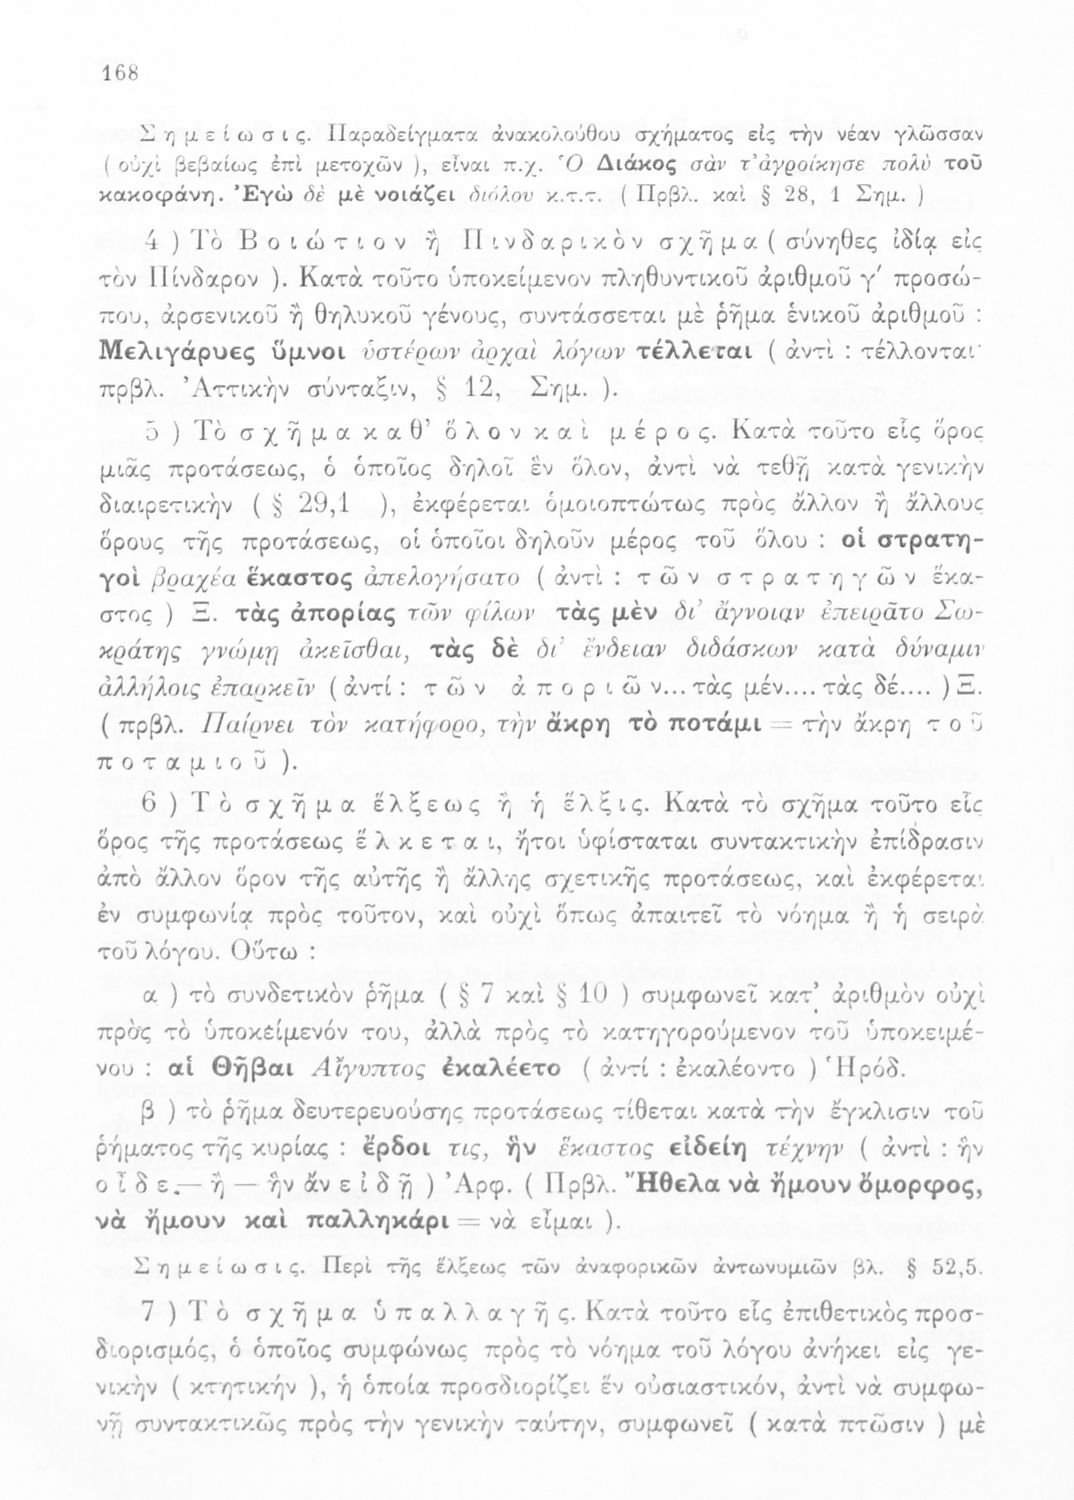 168
Σημείωσις. Παραδείγματα ἀνακολούθου σχήματος εἰς τὴν νέαν γλῶσσαν
( οὐχὶ βεβαίως ἐπὶ μετοχῶν ), εἶναι π.χ. Ὁ Διάκος σὰν τ' ἀγροίκησε πολὺ τοῦ
κακοφάνη. Ἐγὼ δὲ μὲ νοιάζει διόλου κ.τ.τ. ( Πρβλ. καὶ § 28, 1 Σημ. )
4 ) Τὸ Βοιώτιον ἢ Πινδαρικὸν σχῆμα ( σύνηθες ἰδίᾳ εἰς
τὸν Πίνδαρον ). Κατὰ τοῦτο ὑποκείμενον πληθυντικοῦ ἀριθμοῦ γ' προσώ-
που, ἀρσενικοῦ ἢ θηλυκοῦ γένους, συντάσσεται μὲ ῥῆμα ἑνικοῦ ἀριθμοῦ :
Μελιγάρυες ὕμνοι ὑστέρων ἀρχαὶ λόγων τέλλεται ( ἀντὶ : τέλλονται·
πρβλ. Ἀττικὴν σύνταξιν, § 12, Σημ. ).
5 ) Τὸ σχῆμα καθ' ὅλον καὶ μέρος. Κατὰ τοῦτο εἷς ὅρος
μιᾶς προτάσεως, ὁ ὁποῖος δηλοῖ ἓν ὅλον, ἀντὶ νὰ τεθῇ κατὰ γενικὴν
διαιρετικὴν ( § 29,1 ), ἐκφέρεται ὁμοιοπτώτως πρὸς ἄλλον ἢ ἄλλους
ὅρους τῆς προτάσεως, οἱ ὁποῖοι δηλοῦν μέρος τοῦ ὅλου : οἱ στρατη-
γοὶ βραχέα ἕκαστος ἀπελογήσατο ( ἀντὶ : τῶν στρατηγῶν ἕκα-
στος ) Ξ. τὰς ἀπορίας τῶν φίλων τὰς μὲν δι' ἄγνοιαν ἐπειρᾶτο Σω-
κράτης γνώμῃ ἀκεῖσθαι, τὰς δὲ δι' ἔνδειαν διδάσκων κατὰ δύναμιν
ἀλλήλοις ἐπαρκεῖν ( ἀντί : τῶν ἀποριῶν... τὰς μέν.... τὰς δέ.... ) Ξ.
( πρβλ. Παίρνει τὸν κατήφορο, τὴν ἄκρη τὸ ποτάμι = τὴν ἄκρη τοῦ
ποταμιοῦ ).
6 ) Τὸ σχῆμα ἕλξεως ἢ ἡ ἕλξις. Κατὰ τὸ σχῆμα τοῦτο εἷς
ὅρος τῆς προτάσεως ἕλκεται, ἤτοι ὑφίσταται συντακτικὴν ἐπίδρασιν
ἀπὸ ἄλλον ὅρον τῆς αὐτῆς ἢ ἄλλης σχετικῆς προτάσεως, καὶ ἐκφέρεται
ἐν συμφωνίᾳ πρὸς τοῦτον, καὶ οὐχὶ ὅπως ἀπαιτεῖ τὸ νόημα ἢ ἡ σειρὰ
τοῦ λόγου. Οὕτω :
α ) τὸ συνδετικὸν ῥῆμα ( § 7 καὶ § 10 ) συμφωνεῖ κατ' ἀριθμὸν οὐχὶ
πρὸς τὸ ὑποκείμενόν του, ἀλλὰ πρὸς τὸ κατηγορούμενον τοῦ ὑποκειμέ-
νου : αἱ Θῆβαι Αἴγυπτος ἐκαλέετο ( ἀντί : ἐκαλέοντο ) Ἡρόδ.
β ) τὸ ῥῆμα δευτερευούσης προτάσεως τίθεται κατὰ τὴν ἔγκλισιν τοῦ
ῥήματος τῆς κυρίας : ἔρδοι τις, ἣν ἕκαστος εἰδείη τέχνην ( ἀντὶ : ἣν
οἶδε,— ἢ — ἣν ἂν εἰδῇ ) Ἀρφ. ( Πρβλ. Ἤθελα νὰ ἤμουν ὄμορφος,
νὰ ἤμουν καὶ παλληκάρι = νὰ εἶμαι ).
Σημείωσις. Περὶ τῆς ἕλξεως τῶν ἀναφορικῶν ἀντωνυμιῶν βλ. § 52,5.
7 ) Τὸ σχῆμα ὑπαλλαγῆς. Κατὰ τοῦτο εἷς ἐπιθετικὸς προσ-
διορισμός, ὁ ὁποῖος συμφώνως πρὸς τὸ νόημα τοῦ λόγου ἀνήκει εἰς γε-
νικὴν ( κτητικήν ), ἡ ὁποία προσδιορίζει ἓν οὐσιαστικόν, ἀντὶ νὰ συμφω-
νῇ συντακτικῶς πρὸς τὴν γενικὴν ταύτην, συμφωνεῖ ( κατὰ πτῶσιν ) μὲ